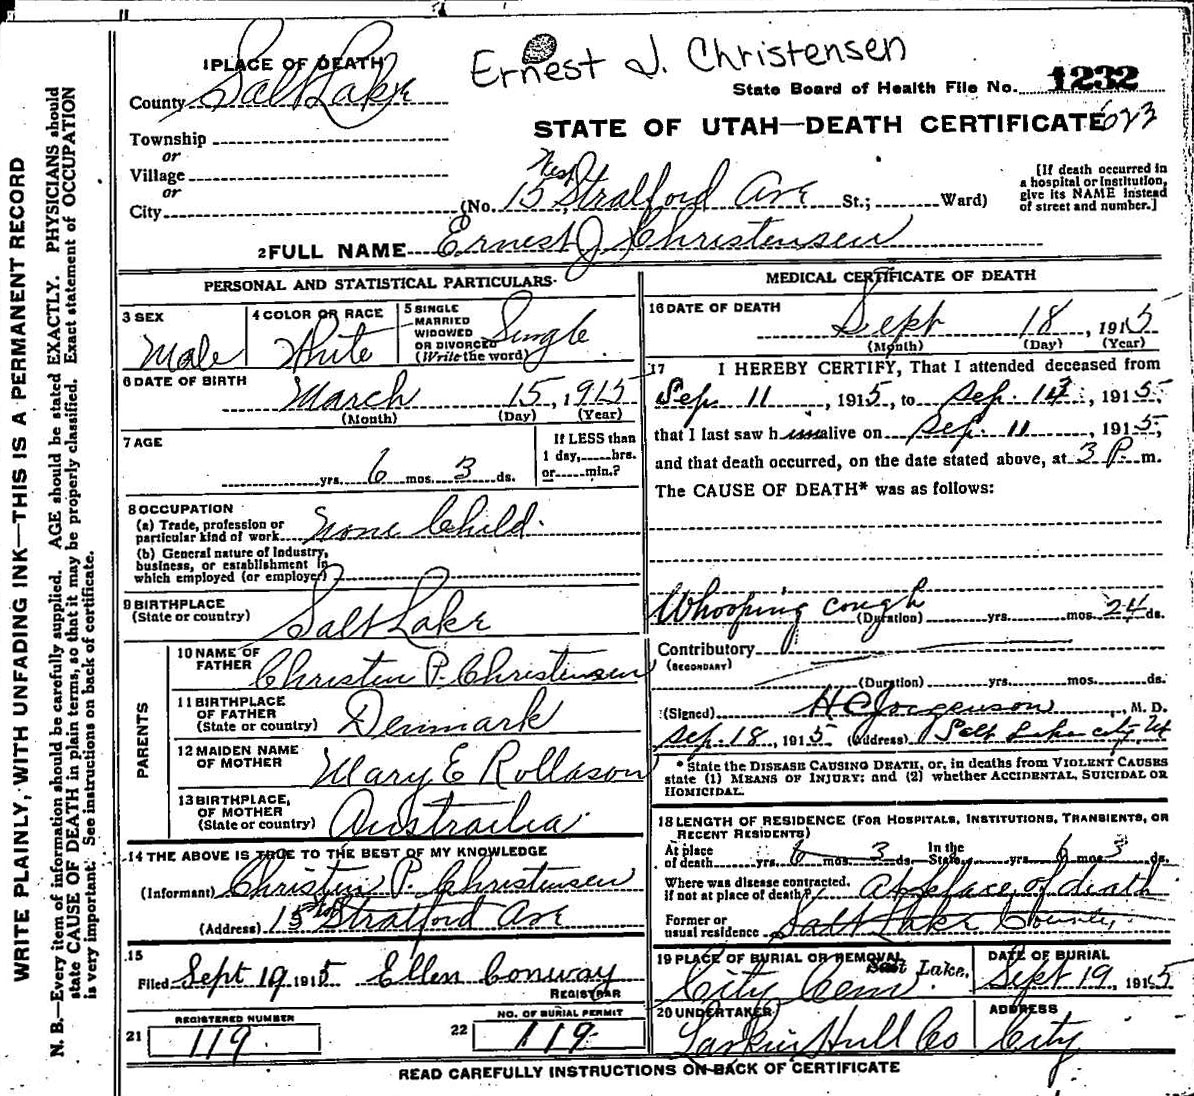 Ernest J. Christensen
1 PLACE OF DEATH
County Salt Lake
State Board of Health File No. 1232
Township
STATE OF UTAH—DEATH CERTIFICATE 623
or
Village
or
City
(No. 15 West Stratford Ave St.; Ward)
[If death occurred in a hospital or institution, give its NAME instead of street and number.]
2 FULL NAME Ernest J Christensen
PERSONAL AND STATISTICAL PARTICULARS
3 SEX Male
4 COLOR OR RACE White
5 SINGLE MARRIED WIDOWED OR DIVORCED (Write the word) Single
6 DATE OF BIRTH March 15, 1915
(Month) (Day) (Year)
7 AGE yrs. 6 mos. 3 ds.
If LESS than 1 day, hrs. or min.?
8 OCCUPATION
(a) Trade, profession or particular kind of work None Child
(b) General nature of Industry, business, or establishment in which employed (or employer)
9 BIRTHPLACE (State or country) Salt Lake
PARENTS
10 NAME OF FATHER Christen P. Christensen
11 BIRTHPLACE OF FATHER (State or country) Denmark
12 MAIDEN NAME OF MOTHER Mary E Rollason
13 BIRTHPLACE, OF MOTHER (State or country) Austrailia
14 THE ABOVE IS TRUE TO THE BEST OF MY KNOWLEDGE
(Informant) Christen P. Christensen
(Address) 15 Stratford Ave
15
Filed Sept 19 1915 Ellen Conway
REGISTRAR
21 REGISTERED NUMBER 119
22 NO. OF BURIAL PERMIT 119
MEDICAL CERTIFICATE OF DEATH
16 DATE OF DEATH Sept 18, 1915
(Month) (Day) (Year)
17 I HEREBY CERTIFY, That I attended deceased from
Sep. 11, 1915, to Sep. 13, 1915.
that I last saw him alive on Sep. 11, 1915,
and that death occurred, on the date stated above, at 3 P. m.
The CAUSE OF DEATH* was as follows:
Whooping cough
(Duration) yrs. mos. 24 ds.
Contributory
(SECONDARY)
(Duration) yrs. mos. ds.
(Signed) H C Jorgenson, M. D.
Sep. 18, 1915 (Address) Salt Lake City Ut
* State the DISEASE CAUSING DEATH, or, in deaths from VIOLENT CAUSES
state (1) MEANS OF INJURY; and (2) whether ACCIDENTAL, SUICIDAL OR
HOMICIDAL.
18 LENGTH OF RESIDENCE (FOR HOSPITALS, INSTITUTIONS, TRANSIENTS, OR
RECENT RESIDENTS)
At place of death yrs. 6 mos. 3 ds. In the State yrs. 6 mos. 3 ds.
Where was disease contracted, if not at place of death? At place of death
Former or usual residence Salt Lake County
19 PLACE OF BURIAL OR REMOVAL City Cem. Salt Lake.
DATE OF BURIAL Sept 19, 1915
20 UNDERTAKER Larkin Hull Co
ADDRESS City
READ CAREFULLY INSTRUCTIONS ON BACK OF CERTIFICATE
WRITE PLAINLY, WITH UNFADING INK—THIS IS A PERMANENT RECORD
N. B.—Every item of information should be carefully supplied. AGE should be stated EXACTLY. PHYSICIANS should
state CAUSE OF DEATH in plain terms, so that it may be properly classified. Exact statement of OCCUPATION
is very important. See instructions on back of certificate.